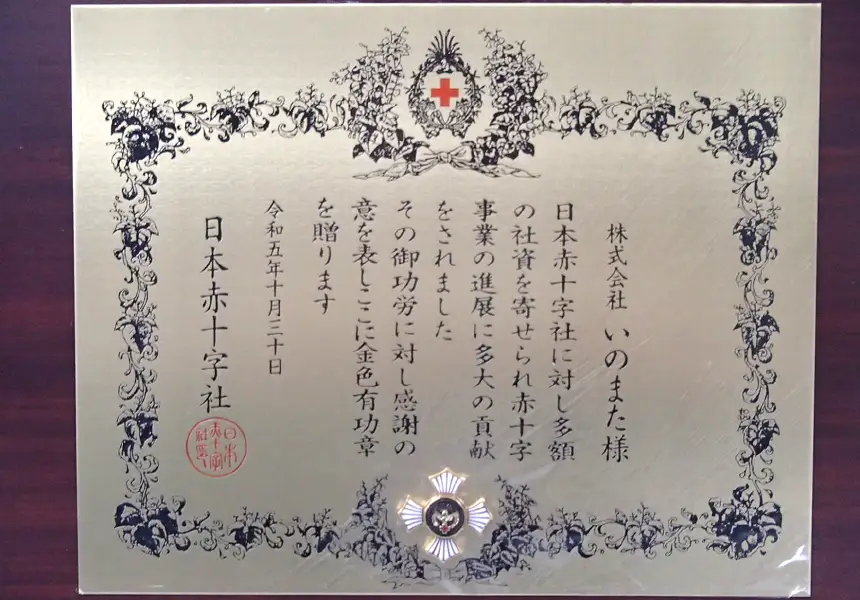 株式会社 いのまた様
日本赤十字社に対し多額
の社資を寄せられ赤十字
事業の進展に多大の貢献
をされました
その御功労に対し感謝の
意を表しここに金色有功章
を贈ります
令和五年十月三十日
日本赤十字社